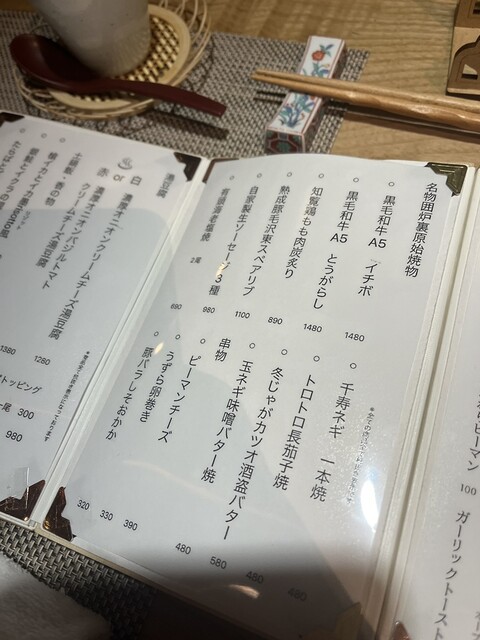 名物囲炉裏原始焼物
○ 黒毛和牛A5 イチボ 1480
○ 黒毛和牛A5 とうがらし 1480
○ 知覧鶏もも肉炭炙り 890
○ 熟成豚毛沢東スペアリブ 1100
○ 自家製生ソーセージ3種 980
○ 有頭海老塩焼 2尾 690
○ 千寿ネギ 一本焼 480
○ トロトロ長茄子焼 480
○ 冬じゃがカツオ酒盗バター 580
○ 玉ネギ味噌バター焼 480
串物
○ ピーマンチーズ 390
○ うずら卵巻き 330
○ 豚バラしそおかか 320
湯豆腐
赤 or 白
○ 濃厚オニオンクリームチーズ湯豆腐
○ 濃厚オニオンバジルトマト
クリームチーズ湯豆腐
1280
1380
トッピング
尾 300
980
ピーマン 100
ガーリックトースト